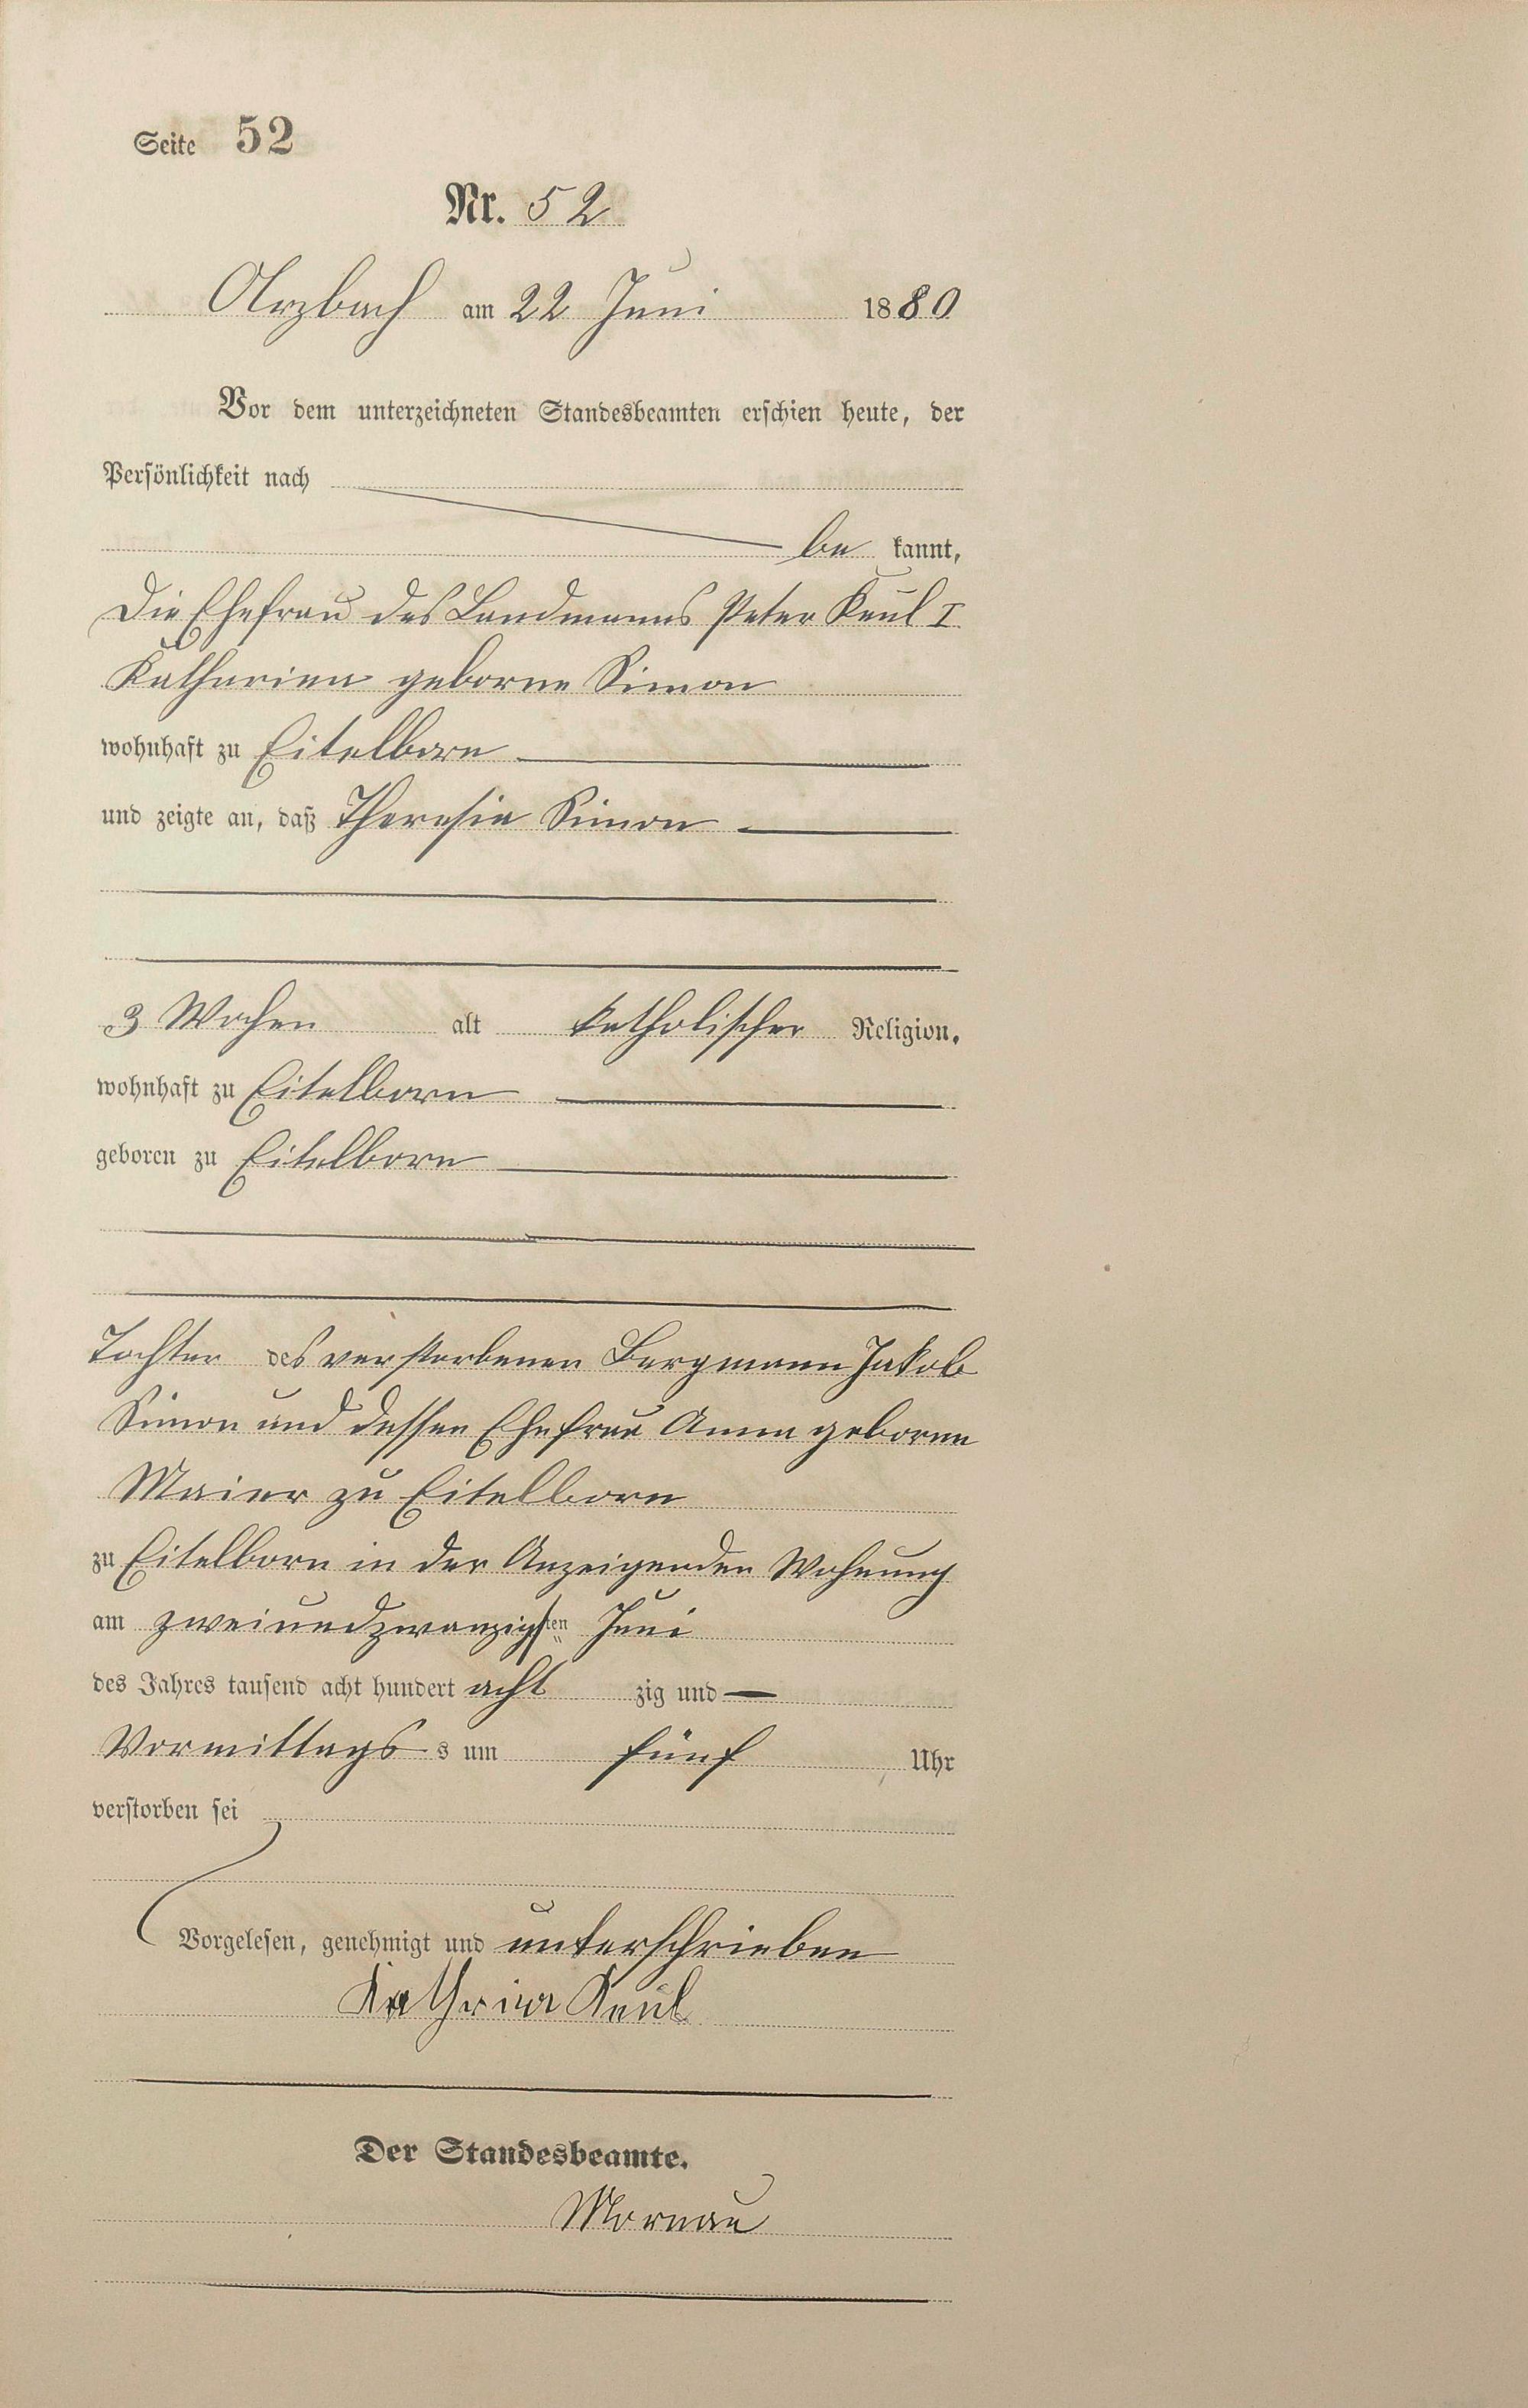 Seite 52
Nr. 52
Arzbach am 22 Juni 1880
Vor dem unterzeichneten Standesbeamten erschien heute, der
Persönlichkeit nach
be kannt,
die Ehefrau des Landmanns Peter Keul I
Katharina geborne Simon
wohnhaft zu Eitelborn
und zeigte an, daß Theresia Simon
3 Wochen alt katholischer Religion,
wohnhaft zu Eitelborn
geboren zu Eitelborn
Tochter des verstorbenen Bergmann Jakob
Simon und dessen Ehefrau Anna geborne
Maier zu Eitelborn
zu Eitelborn in der Anzeigenden Wohnung
am zweiundzwanzigsten Juni
des Jahres tausend acht hundert acht zig und
Vormittags s um fünf Uhr
verstorben sei
Vorgelesen, genehmigt und unterschrieben
Kathrina Keul
Der Standesbeamte.